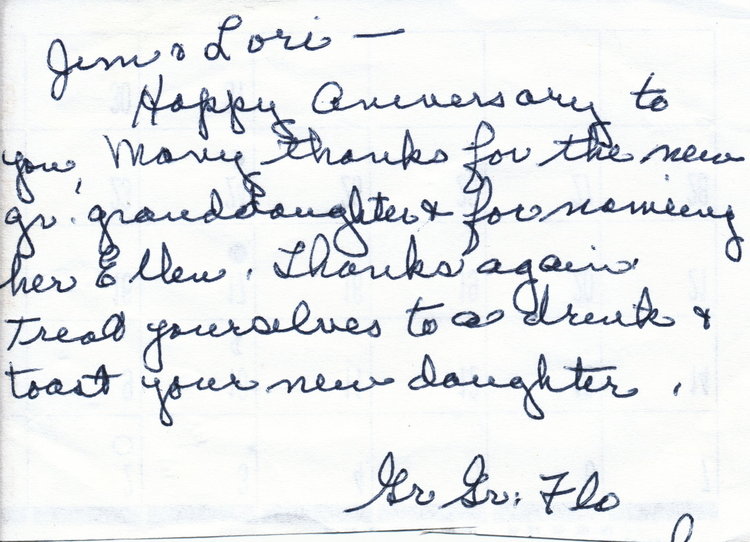 Jim & Lori —
Happy Anniversary to
you, Many thanks for the new
gr. granddaughter & for naming
her Ellen. Thanks again
Treat yourselves to a drink &
toast your new daughter.
Gr Gr. Flo